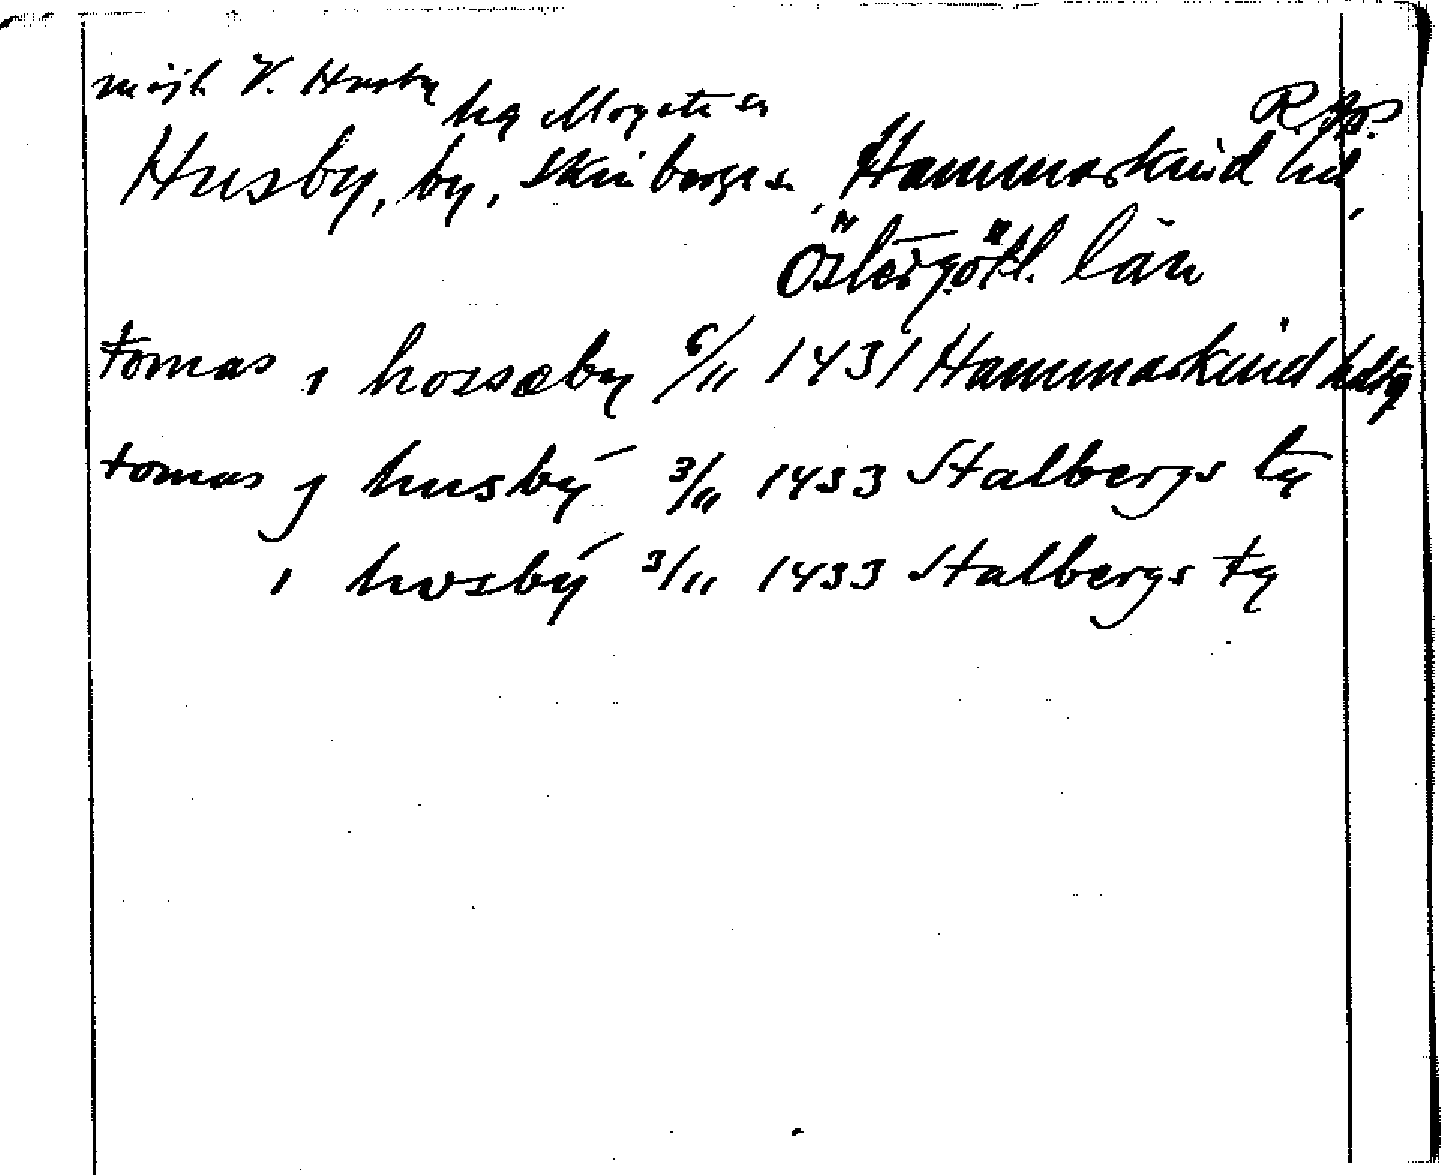 möjl. V. Husby hg Mogata sn
R. pp.
Husby, by, Skönberga sn, Hammarkind hd,
Östergötl. län
tomas i hossæby 6/11 1431 Hammarkind hdtg
tomas j husbÿ 3/11 1433 Stalbergs tg
i hosbÿ 3/11 1433 Stalbergs tg